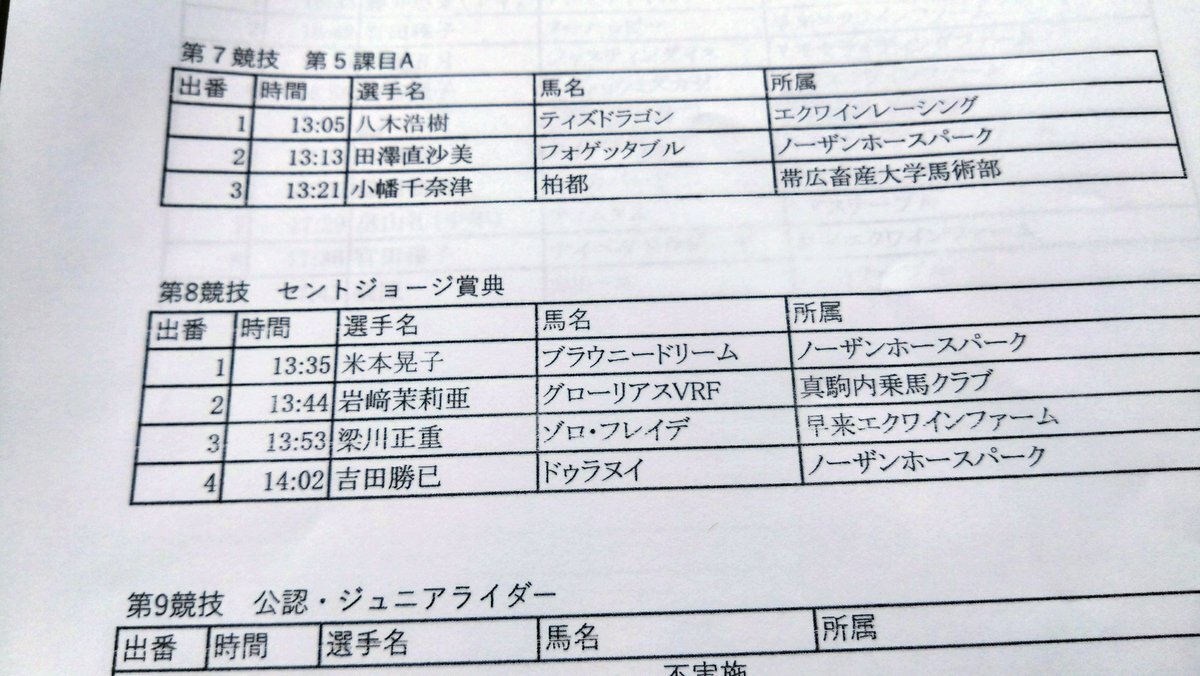 第7競技 第5課目A
出番 時間 選手名 馬名 所属
1 13:05 八木浩樹 ティズドラゴン エクワインレーシング
2 13:13 田澤直沙美 フォゲッタブル ノーザンホースパーク
3 13:21 小幡千奈津 柏都 帯広畜産大学馬術部
第8競技 セントジョージ賞典
出番 時間 選手名 馬名 所属
1 13:35 米本晃子 ブラウニードリーム ノーザンホースパーク
2 13:44 岩﨑茉莉亜 グローリアスVRF 真駒内乗馬クラブ
3 13:53 梁川正重 ゾロ・フレイデ 早来エクワインファーム
4 14:02 吉田勝已 ドゥラヌイ ノーザンホースパーク
第9競技 公認・ジュニアライダー
出番 時間 選手名 馬名 所属
不実施